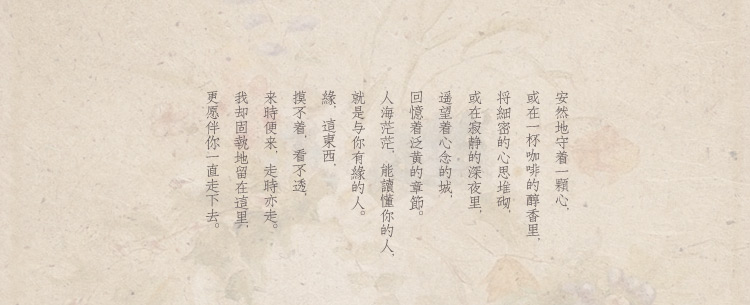 安然地守着一顆心,
或在一杯咖啡的醇香里,
将細密的心思堆砌,
或在寂静的深夜里,
遥望着心念的城,
回憶着泛黄的章節。
人海茫茫,能讀懂你的人,
就是与你有緣的人。
緣,這東西,
摸不着,看不透,
来時便来,走時亦走。
我却固執地留在這里,
更愿伴你一直走下去。